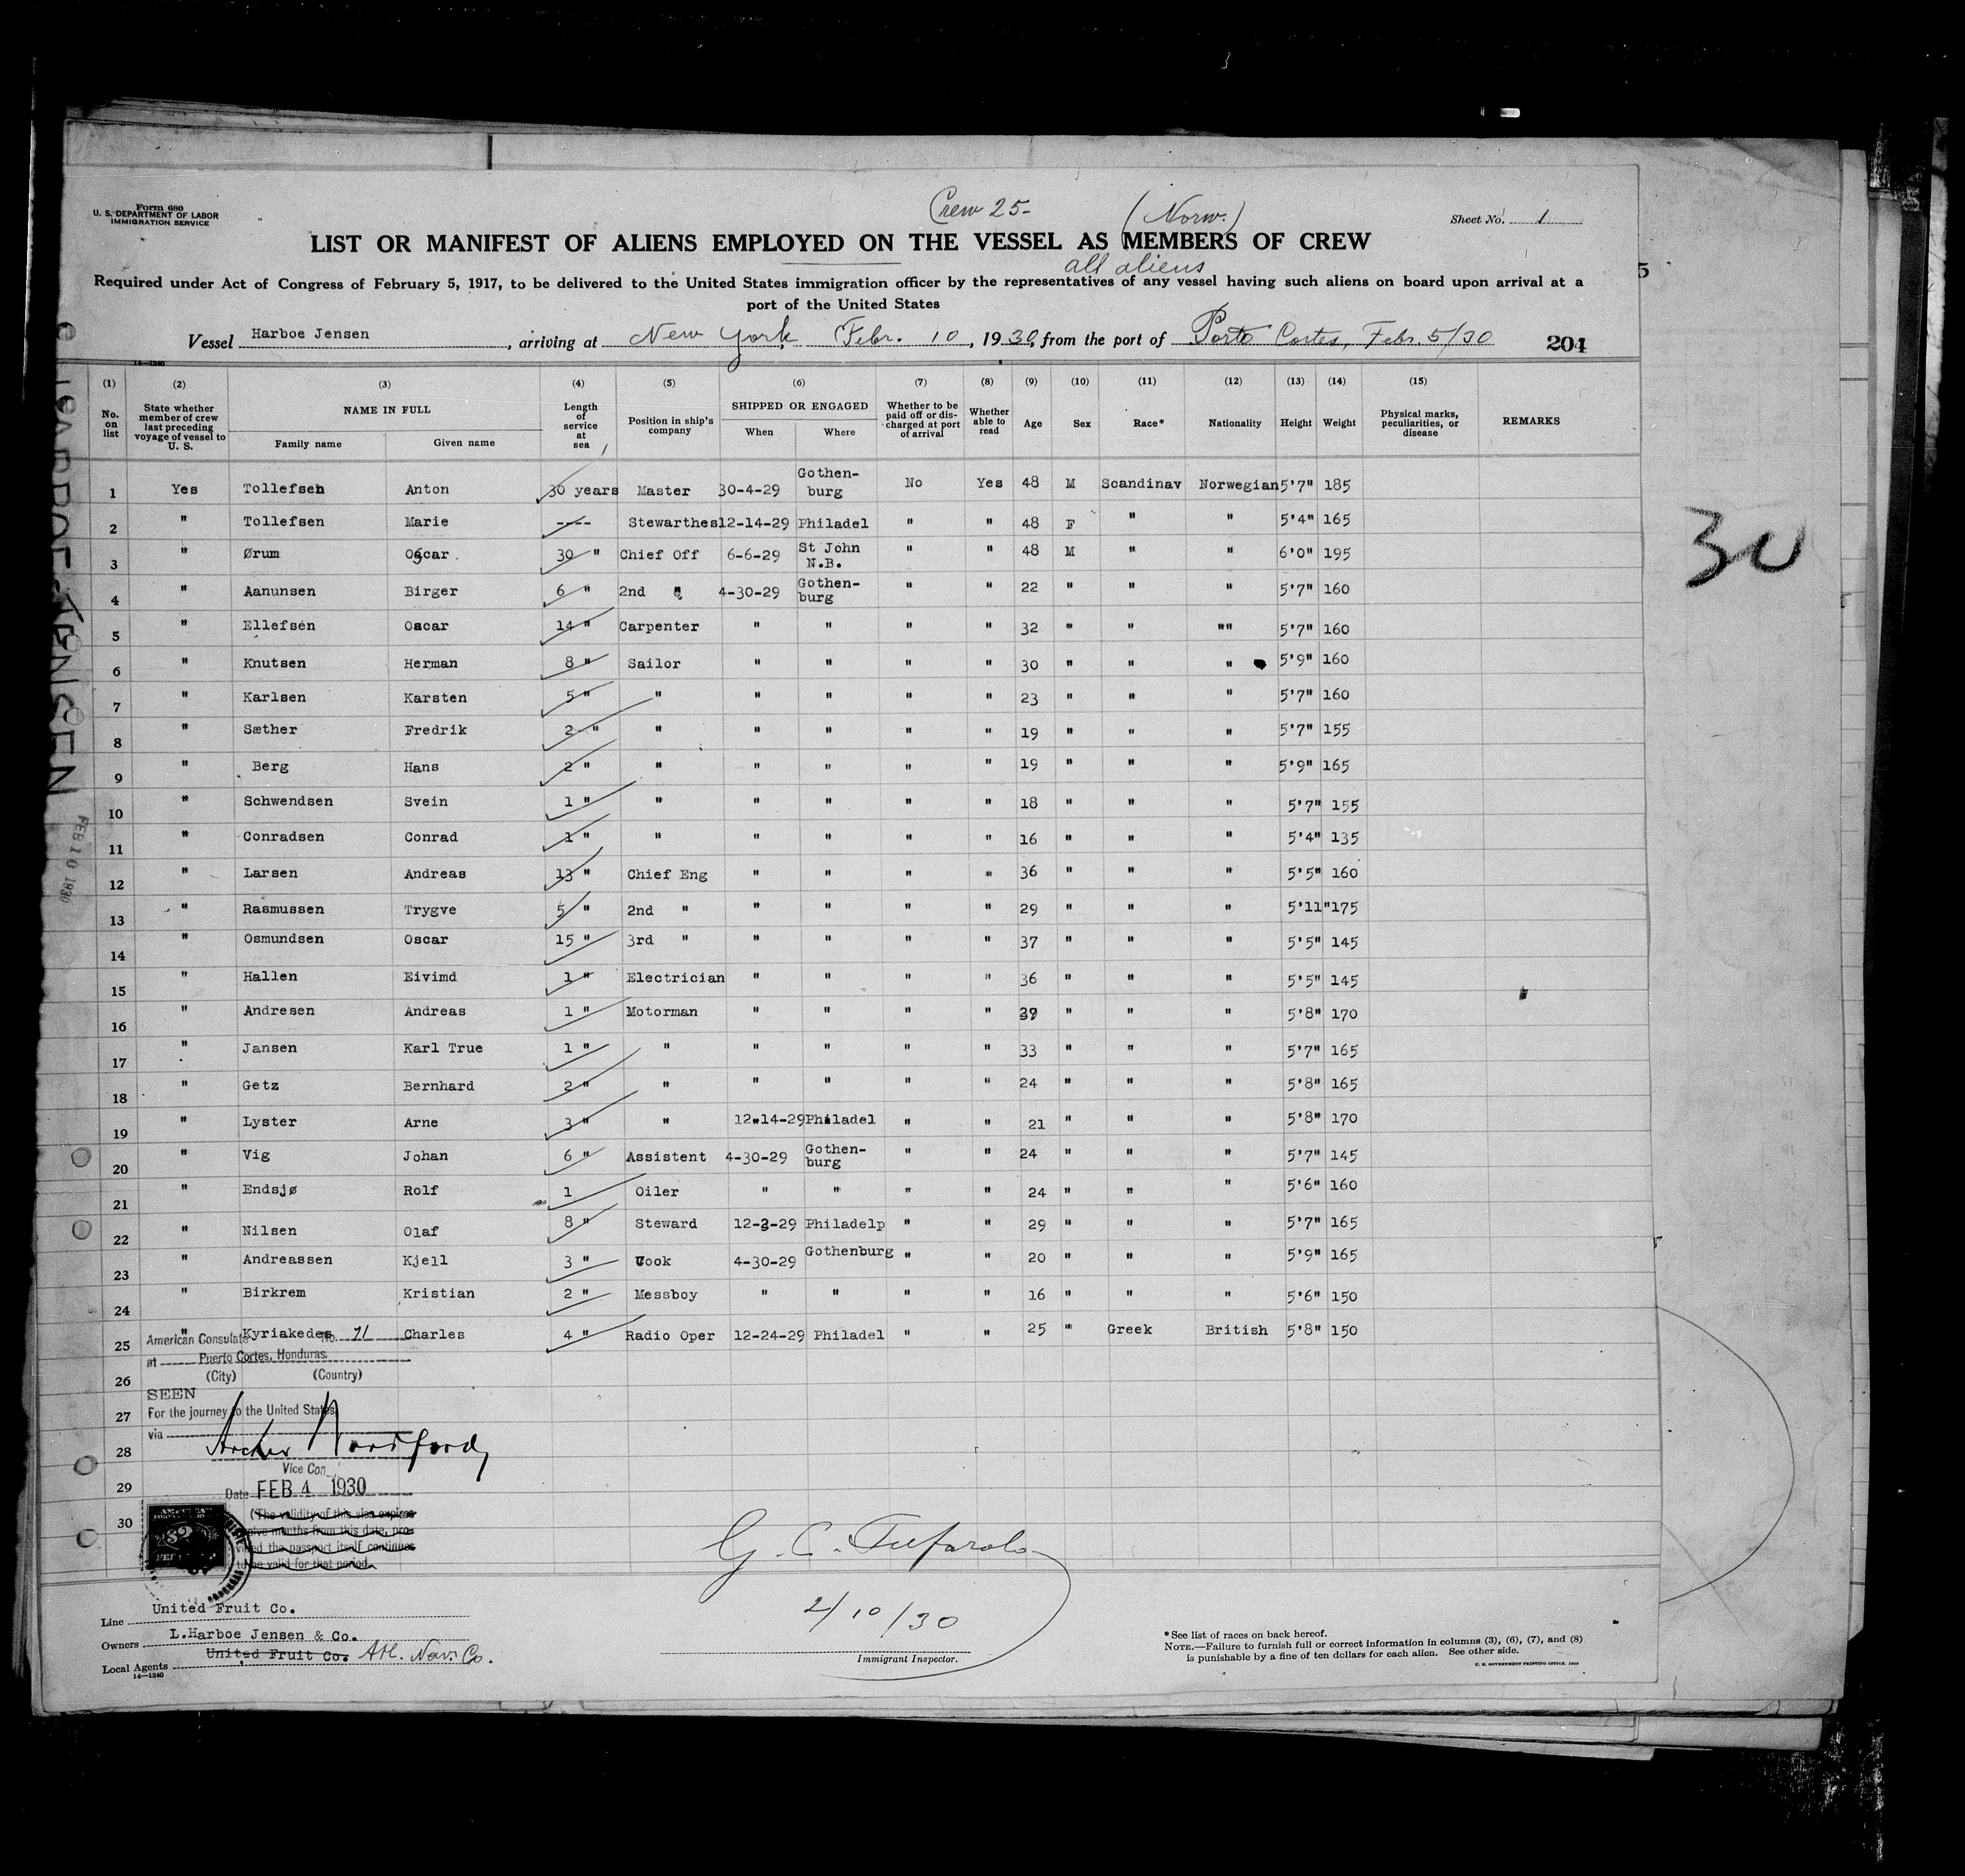 Form 680
U. S. DEPARTMENT OF LABOR
IMMIGRATION SERVICE
Crew 25- (Norw.)
Sheet No. 1
LIST OR MANIFEST OF ALIENS EMPLOYED ON THE VESSEL AS MEMBERS OF CREW
all aliens
Required under Act of Congress of February 5, 1917, to be delivered to the United States immigration officer by the representatives of any vessel having such aliens on board upon arrival at a
port of the United States
Vessel Harboe Jensen, arriving at New York, Febr. 10, 1930, from the port of Porto Cortes, Febr. 5/30 204
14—1240
(1) (2) (3) (4) (5) (6) (7) (8) (9) (10) (11) (12) (13) (14) (15)
No. on list State whether member of crew last preceding voyage of vessel to U. S. NAME IN FULL Family name Given name Length of service at sea Position in ship's company SHIPPED OR ENGAGED When Where Whether to be paid off or discharged at port of arrival Whether able to read Age Sex Race* Nationality Height Weight Physical marks, peculiarities, or disease REMARKS
1 Yes Tollefsen Anton 30 years Master 30-4-29 Gothen-burg No Yes 48 M Scandinav Norwegian 5'7" 185
2 " Tollefsen Marie ---- Stewarthes 12-14-29 Philadel " " 48 F " " 5'4" 165
3 " Ørum Oscar 30 " Chief Off 6-6-29 St John N.B. " " 48 M " " 6'0" 195
4 " Aanunsen Birger 6 " 2nd " 4-30-29 Gothen-burg " " 22 " " " 5'7" 160
5 " Ellefsen Oscar 14 " Carpenter " " " " 32 " " "" 5'7" 160
6 " Knutsen Herman 8 " Sailor " " " " 30 " " " 5'9" 160
7 " Karlsen Karsten 5 " " " " " " 23 " " " 5'7" 160
8 " Sæther Fredrik 2 " " " " " " 19 " " " 5'7" 155
9 " Berg Hans 2 " " " " " " 19 " " " 5'9" 165
10 " Schwendsen Svein 1 " " " " " " 18 " " " 5'7" 155
11 " Conradsen Conrad 1 " " " " " " 16 " " " 5'4" 135
12 " Larsen Andreas 13 " Chief Eng " " " " 36 " " " 5'5" 160
13 " Rasmussen Trygve 5 " 2nd " " " " " 29 " " " 5'11" 175
14 " Osmundsen Oscar 15 " 3rd " " " " " 37 " " " 5'5" 145
15 " Hallen Eivimd 1 " Electrician " " " " 36 " " " 5'5" 145
16 " Andresen Andreas 1 " Motorman " " " " 39 " " " 5'8" 170
17 " Jansen Karl True 1 " " " " " " 33 " " " 5'7" 165
18 " Getz Bernhard 2 " " " " " " 24 " " " 5'8" 165
19 " Lyster Arne 3 " " 12-14-29 Philadel " " 21 " " " 5'8" 170
20 " Vig Johan 6 " Assistent 4-30-29 Gothen-burg " " 24 " " " 5'7" 145
21 " Endsjø Rolf 1 Oiler " " " " 24 " " " 5'6" 160
22 " Nilsen Olaf 8 " Steward 12-3-29 Philadelp " " 29 " " " 5'7" 165
23 " Andreassen Kjell 3 " Cook 4-30-29 Gothenburg " " 20 " " " 5'9" 165
24 " Birkrem Kristian 2 " Messboy " " " " 16 " " " 5'6" 150
25 " Kyriakedes Charles 4 " Radio Oper 12-24-29 Philadel " " 25 " Greek British 5'8" 150
American Consulate No. 71
at Puerto Cortes, Honduras
(City) (Country)
26
SEEN
27 For the journey to the United States
via
28
Vice Con
29 Date FEB 4 1930
30 (The validity of this visa expires
months from this date, pro-
vided the passport itself continues
to be valid for that period.
HARBOE JENSEN
FEB 10 1930
30
5
G. C.
2/10/30
Immigrant Inspector.
Line United Fruit Co.
Owners L.Harboe Jensen & Co.
Local Agents United Fruit Co. Atl. Nav. Co.
14—1240
*See list of races on back hereof.
NOTE.—Failure to furnish full or correct information in columns (3), (6), (7), and (8)
is punishable by a fine of ten dollars for each alien. See other side.